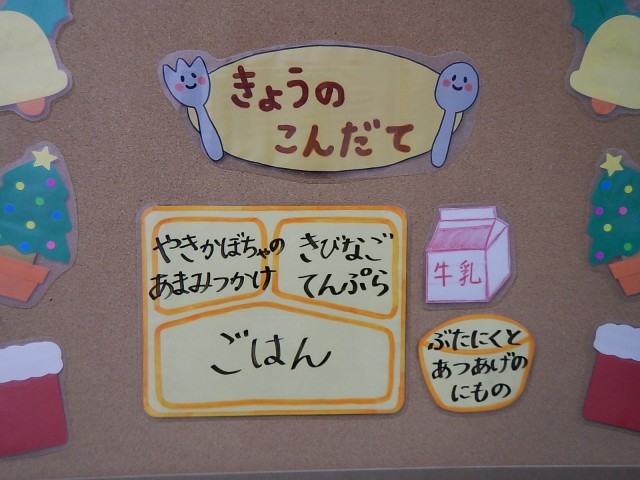 きょうの
こんだて
やきかぼちゃの
あまみつかけ
きびなご
てんぷら
ごはん
牛乳
ぶたにくと
あつあげの
にもの